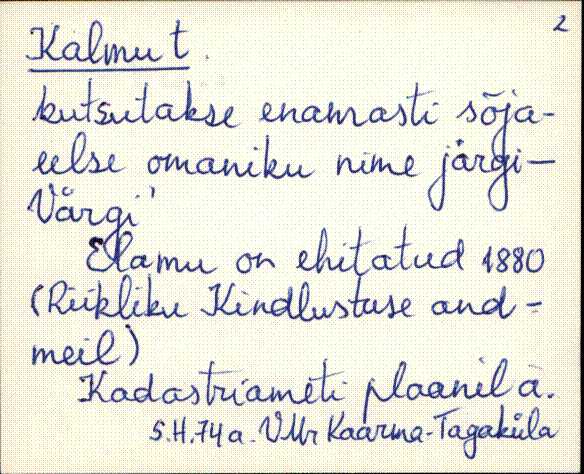 2
Kalmu t.
kutsutakse enamasti sõja-
eelse omaniku nime järgi –
Värgi'
Elamu on ehitatud 1880
(Riikliku Kindlustuse and-
meil)
Kadastriameti plaanil a.
S.H.74a. VMr Kaarma-Tagaküla